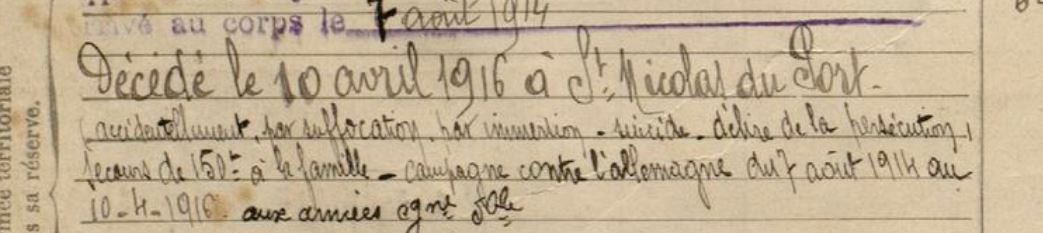 rrivé au corps le 7 août 1914
Décédé le 10 avril 1916 à St. Nicolas du Port.
(accidentellement, par suffocation, par immersion - suicide - délire de la persécution,
secours de 150f à la famille - campagne contre l'allemagne du 7 août 1914 au
10-4-1916 aux armées
ée territoriale
s sa réserve.